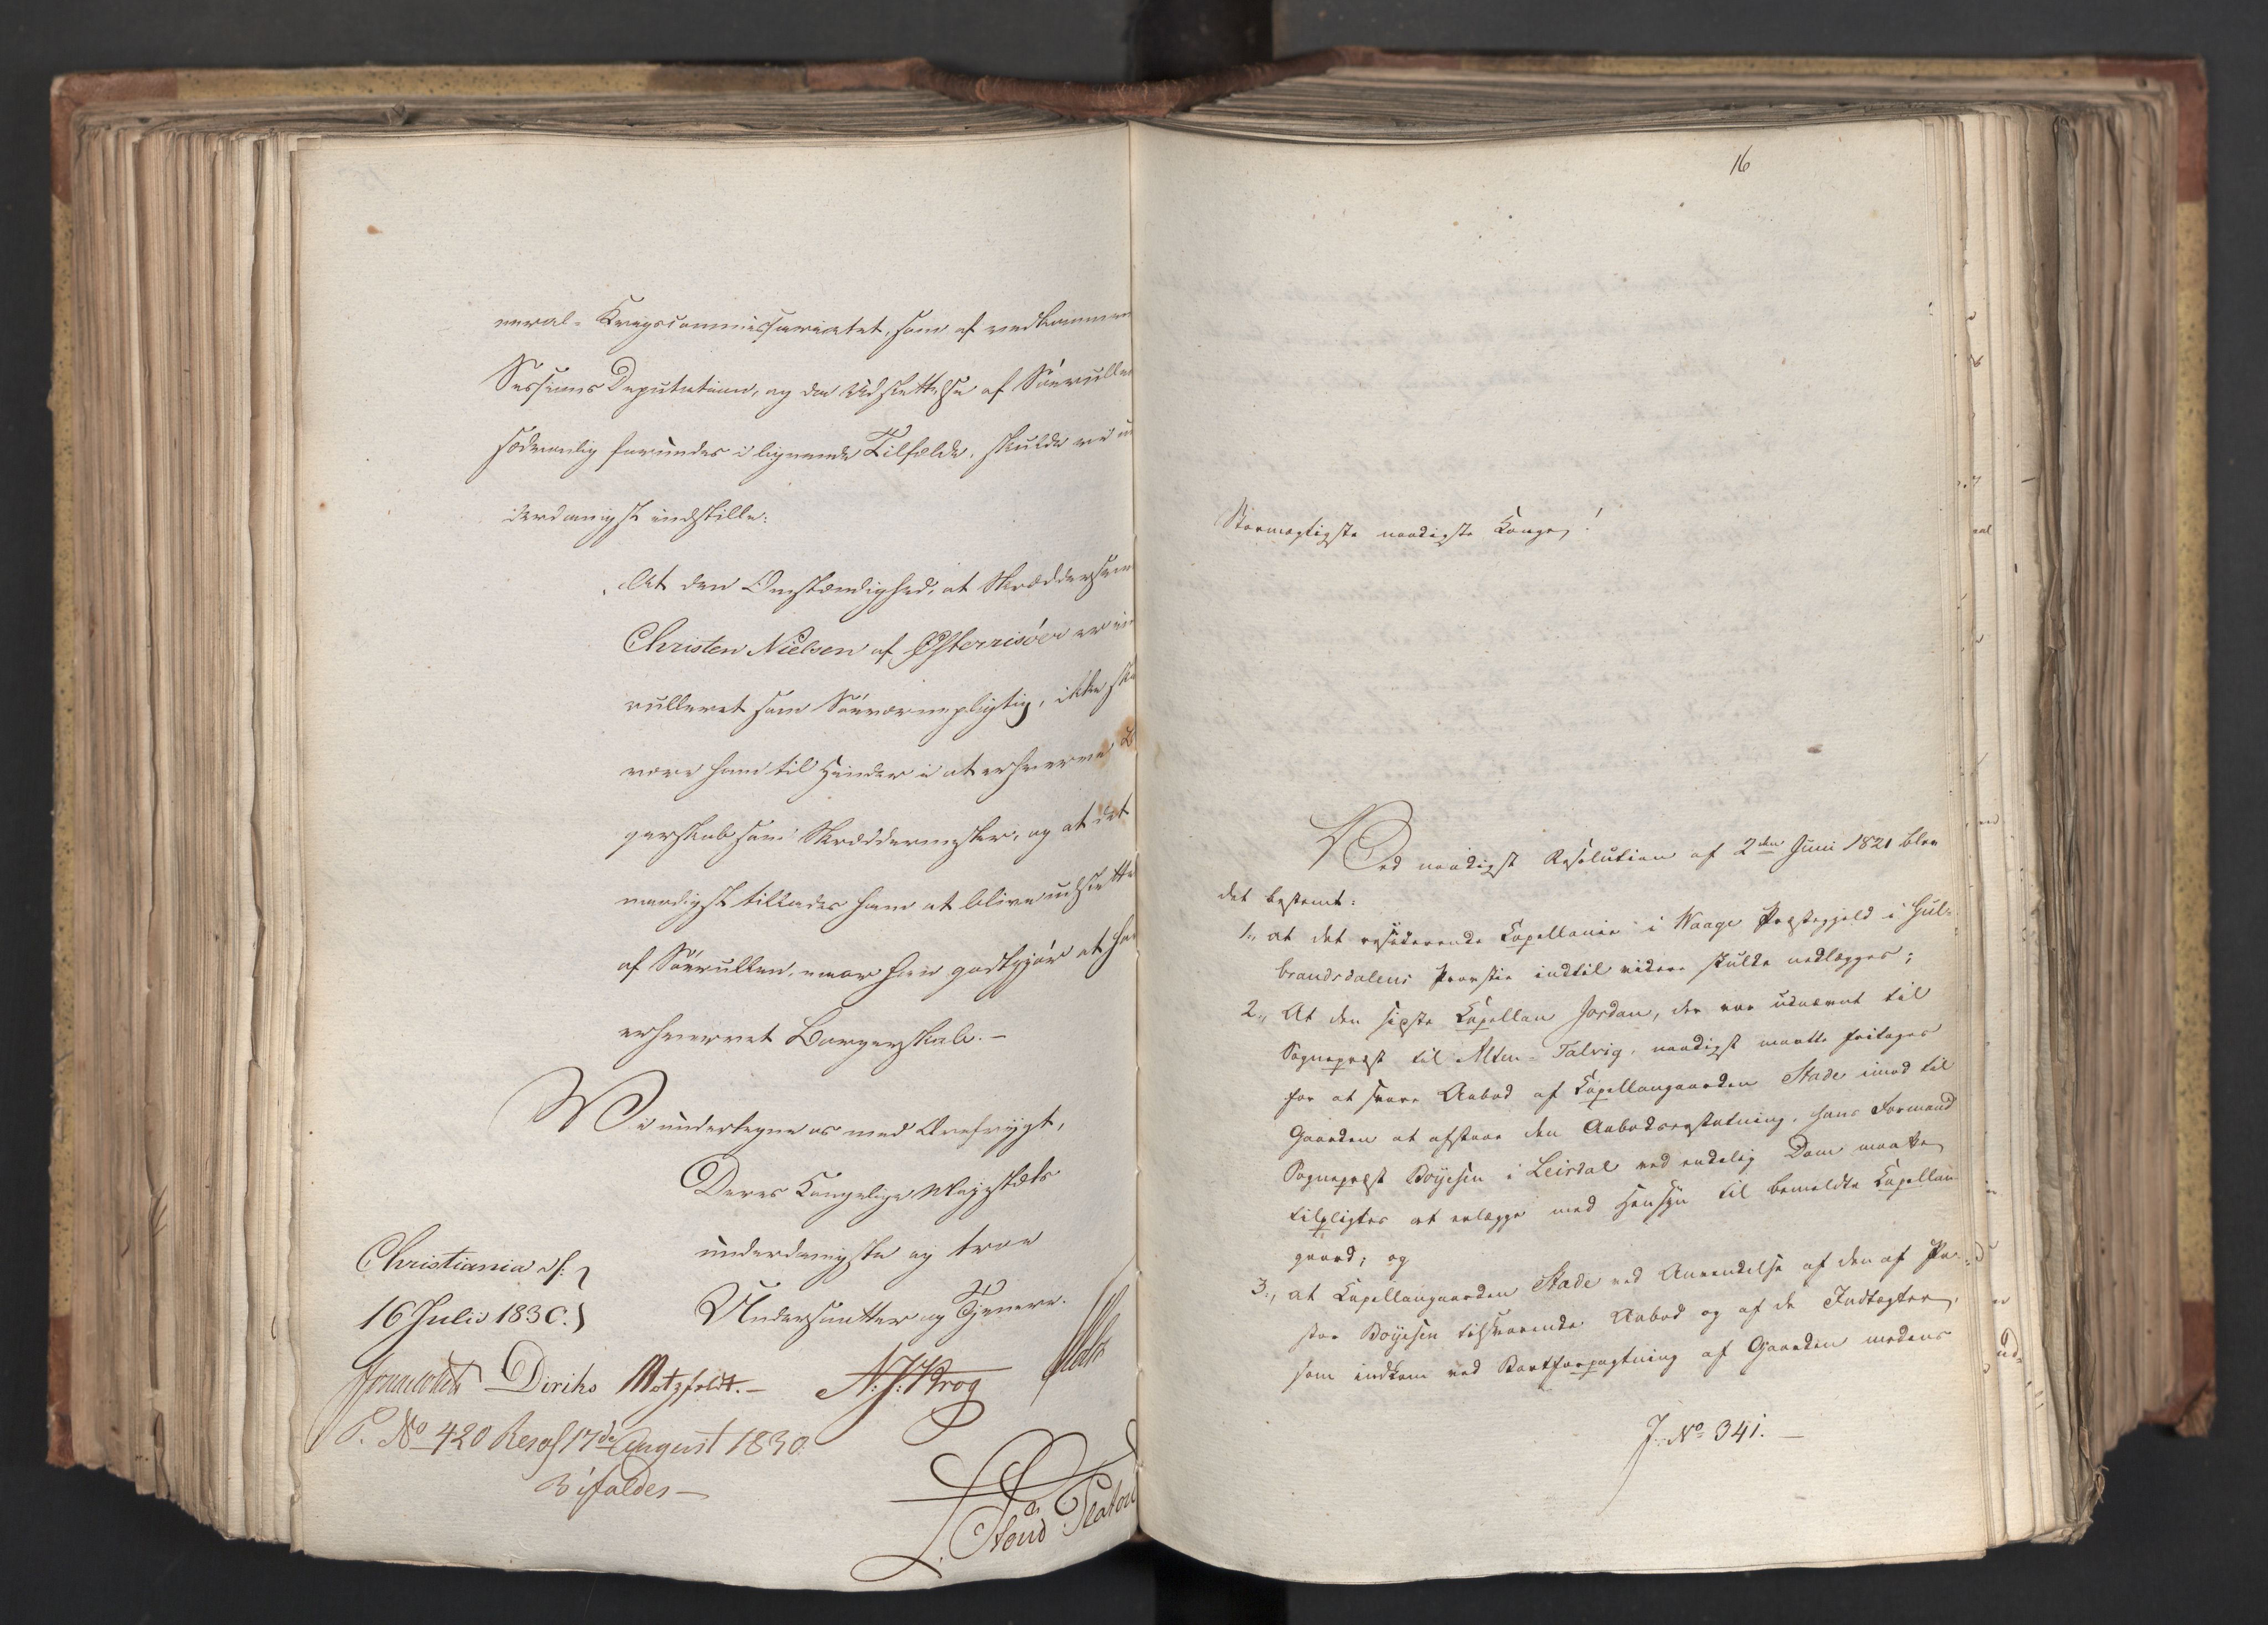 neral-Krigscommissariatet, som af vedkommen
Sessions Deputation, og da Udslettelse af Søerullen
sædvanlig forundes i lignende Tilfælde, skulde vi un
derdanigst indstille:
At den Omstændighed, at Skræddersvend
Christen Nielsen af Østerrisöer er in
rulleret som Søeværnepligtig, ikke skal
være ham til Hinder i at erhverve B
gerskab som Skræddermester, og at det
naadigst tillades ham at blive udslettet
af Søerullen, naar han godtgjør at have
erhvervet Borgerskab. —
Vi undertegne os med Ærefrygt,
Deres Kongelige Majestæts
underdanigste og troe
Undersaatter og Tjenere.
Christiania d:
16 Julii 1830.
Sommerfeldt Diriks Motzfeldt. — N: J: Krog
P. No 420 Resol 17de August 1830.
Bifaldes —
L. Stoud Platou
16
Stormægtigste naadigste Konge!
Ved naadigst Resolution af 2den Juni 1821 blev
det bestemt:
1., at det residerende Capellanie i Waage Præstegjeld i Gul-
brandsdalens Provstie indtil videre skulde nedlægges;
2., At den sidste Capellan Jordan, der var udnævnt til
Sognepræst til Alten-Talvig, naadigst maatte fritages
for at svare Aabod af Capellangaarden Stade imod til
Gaarden at afstaae den Aabodserstatning, hans Formand
Sognepræst Boÿesen i Leirdal ved endelig Dom maatte
tilpligtes at erlægge med Hensyn til bemeldte Capellan
gaard; og
3., at Capellangaarden Stade ved Anvendelse af den af Pa-
stor Boÿesen tilsvarende Aabod og af de Indtægter,
som indkom ved Bortforpagtning af Gaarden medens
J. No 341. —